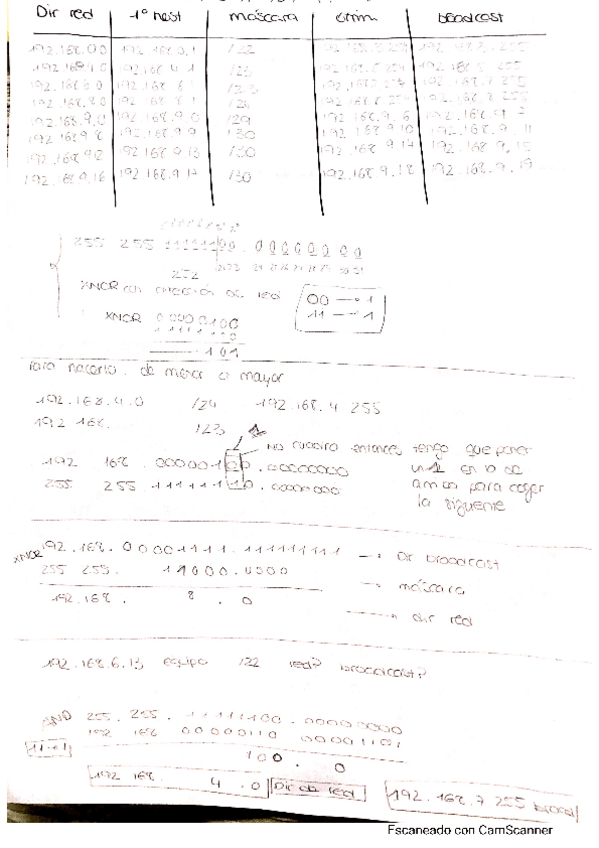 Dir red 1º host máscara último broadcast
192.168.0.0 192.168.0.1 /22 192.168.3.254 192.168.3.255
192.168.4.0 192.168.4.1 /23 192.168.5.254 192.168.5.255
192.168.6.0 192.168.6.1 /23 192.168.7.254 192.168.7.255
192.168.8.0 192.168.8.1 /24 192.168.8.254 192.168.8.255
192.168.9.0 192.168.9.0 /29 192.168.9.6 192.168.9.7
192.168.9.8 192.168.9.9 /30 192.168.9.10 192.168.9.11
192.168.9.12 192.168.9.13 /30 192.168.9.14 192.168.9.15
192.168.9.16 192.168.9.17 /30 192.168.9.18 192.168.9.19
255 255 11111100.00000000
252
XNOR con dirección de red 00 → 1
11 → 1
XNOR 00000100
11111100
101
Para hacerlo de menor a mayor
192.168.4.0 /24 192.168.4 255
192 168. /23
NO cuadra entonces tengo que poner
192 168 .00000100.00000000 un 1 en lo de
255 255 11111110.00000000 ambos para coger
la siguiente
XNOR 192.168.00001111.11111111 → Dir broadcast
255 255. 11000.0000 → máscara
192.168. 8 . 0 → dir red
192.168.6.13 equipo /22 red? broadcast?
AND 255.255.11111100.00000000
192 168 00000110 00001101
11→1
100 . 0
192 168. 4 .0 Dir de red 192.168.7 255 broad
Escaneado con CamScanner